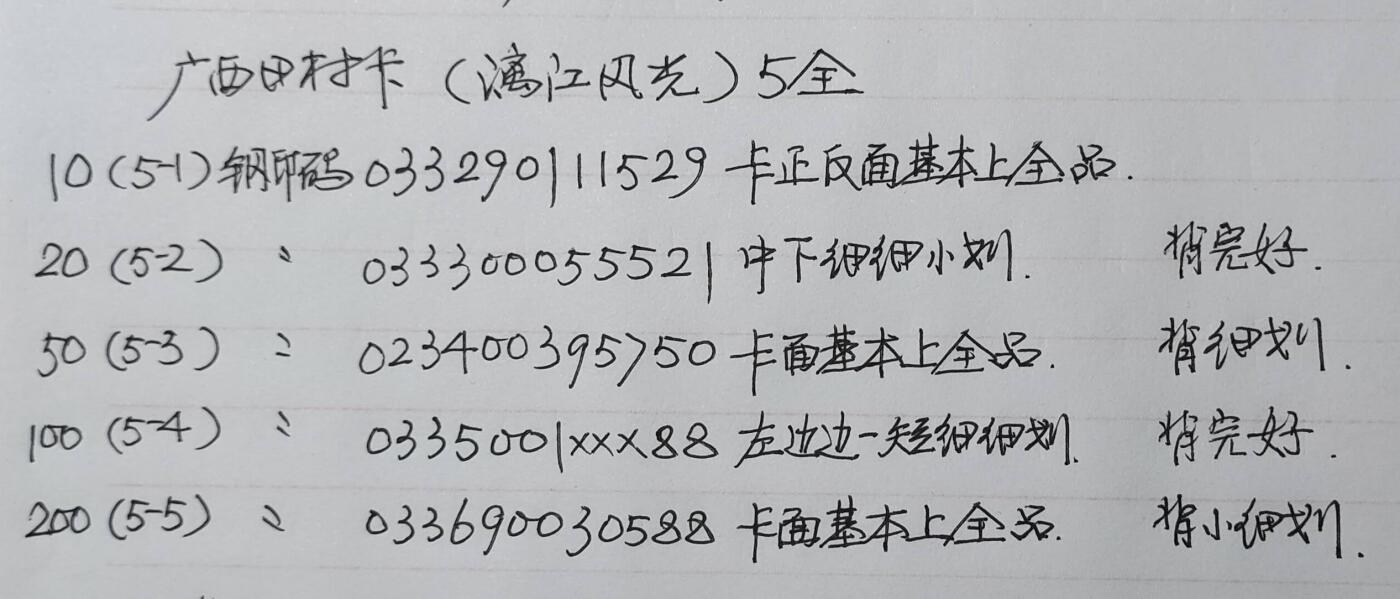 广西田村卡（漓江风光）5全
10（5-1）钢印码 033290111529 卡正反面基本上全品.
20（5-2） 〃 033300055521 中下细细小划. 背完好.
50（5-3） 〃 023400395750 卡面基本上全品. 背细划.
100（5-4） 〃 0335001xxx88 左边边一短细细划. 背完好.
200（5-5） 〃 033690030588 卡面基本上全品. 背小细划.